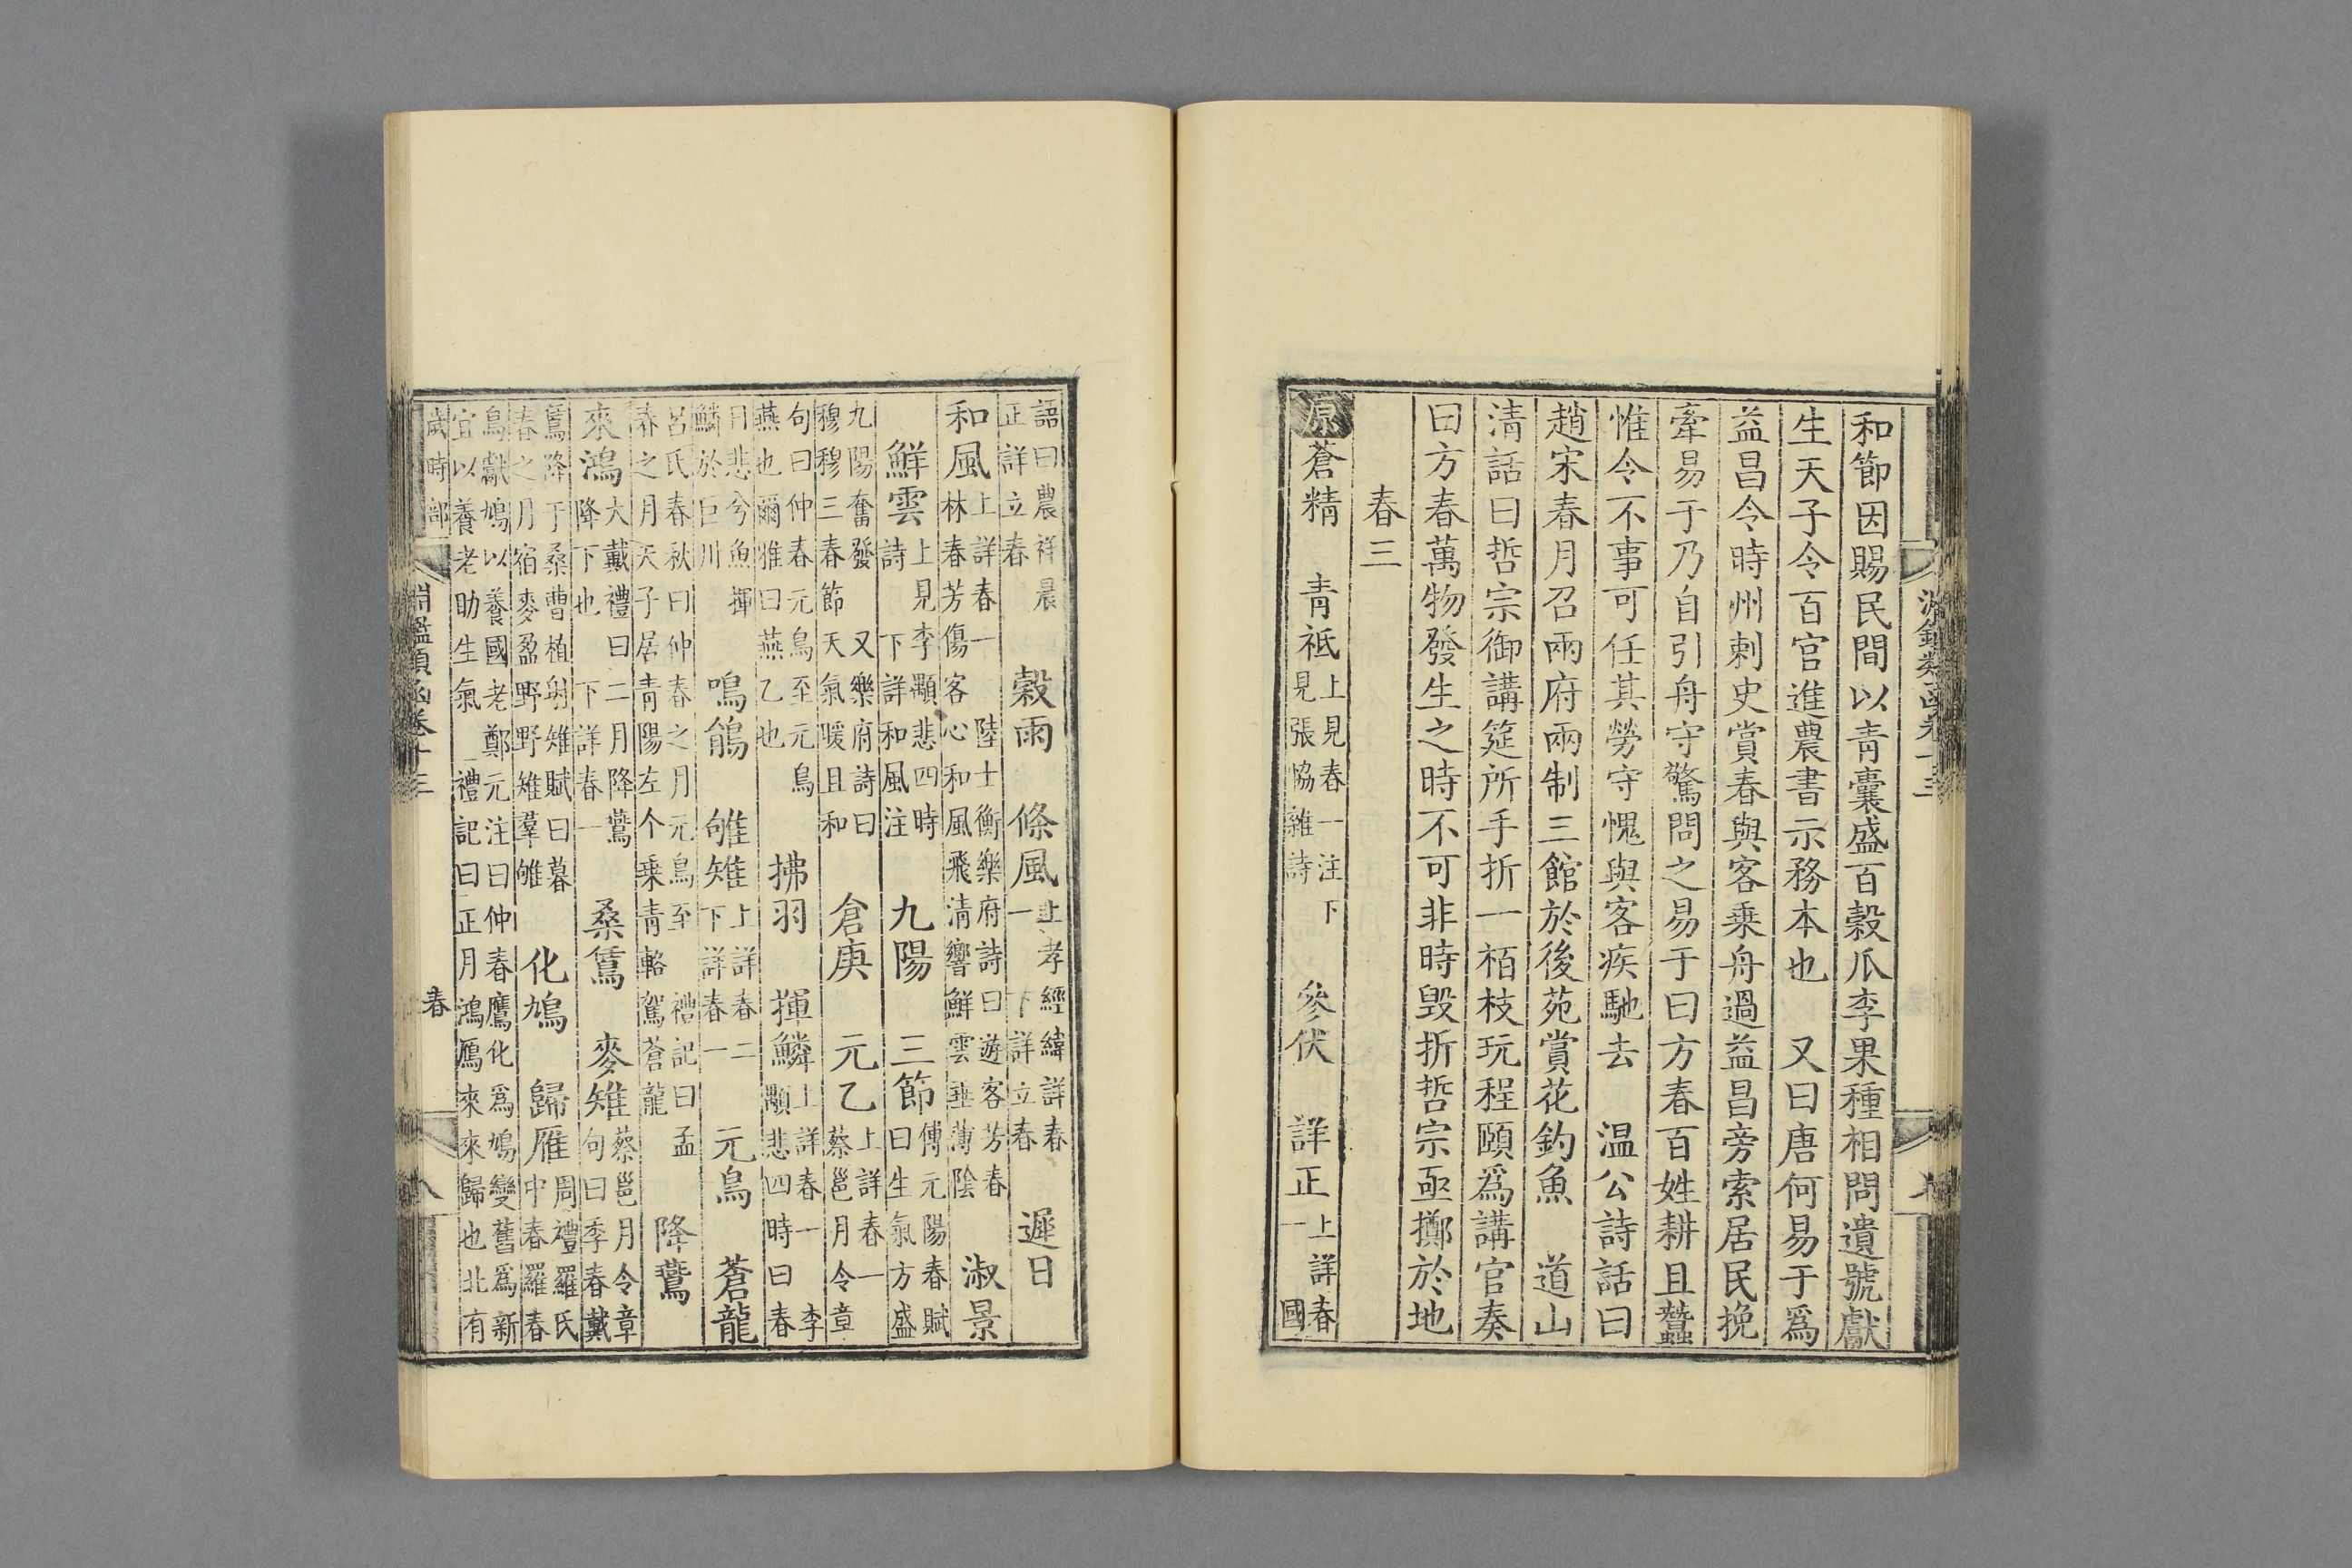 和節因賜民間以青囊盛百穀瓜李果種相問遺號獻
生天子令百官進農書示務本也　又曰唐何易于爲
益昌令時州刺史賞春與客乗舟過益昌旁索居民挽
牽易于乃自引舟守驚問之易于曰方春百姓耕且蠶
惟令不事可任其勞守愧與客疾馳去　温公詩話曰
趙宋春月召兩府兩制三館於後苑賞花釣魚　道山
清話曰哲宗御講筵所手折一栢枝玩程頤爲講官奏
曰方春萬物發生之時不可非時毁折哲宗亟擲於地
春三
原蒼精　青祇上見春一注下見張恊雜詩　參伏　詳正上詳春一國
語曰農祥晨正詳立春　穀雨　條風上孝經緯詳春一下詳立春　遲日
和風上詳春一　陸士衡樂府詩曰遊客芳春林春芳傷客心和風飛清響鮮雲垂薄陰　淑景
鮮雲上見李顒悲四時詩　下詳和風注　九陽　三節傅元陽春賦曰生氣方盛
九陽奮發　又樂府詩曰穆穆三春節天氣暖且和　倉庚　元乙上詳春一蔡邕月令章
句曰仲春元鳥至元鳥燕也爾雅曰燕乙也　拂羽　揮鱗上詳春一　李顒悲四時曰春
日悲兮魚揮鱗於巨川　鳴鶬　雊雉上詳春二下詳春一　元鳥　蒼龍
呂氏春秋曰仲春之月元鳥至　禮記曰孟春之月天子居青陽左个乗青輅駕蒼龍　降鷰
來鴻大戴禮曰二月降鷰降下也　下詳春一　桑鳸　麥雉蔡邕月令章句曰季春戴
鳸降于桑曹植射雉賦曰暮春之月宿麥盈野野雉羣雊　化鳩　歸雁周禮羅氏中春羅春
鳥獻鳩以養國老鄭元注曰仲春鷹化爲鳩變舊爲新宜以養老助生氣　禮記曰正月鴻鴈來來歸也北有
歲時部　淵鑑類函卷十三　春　八